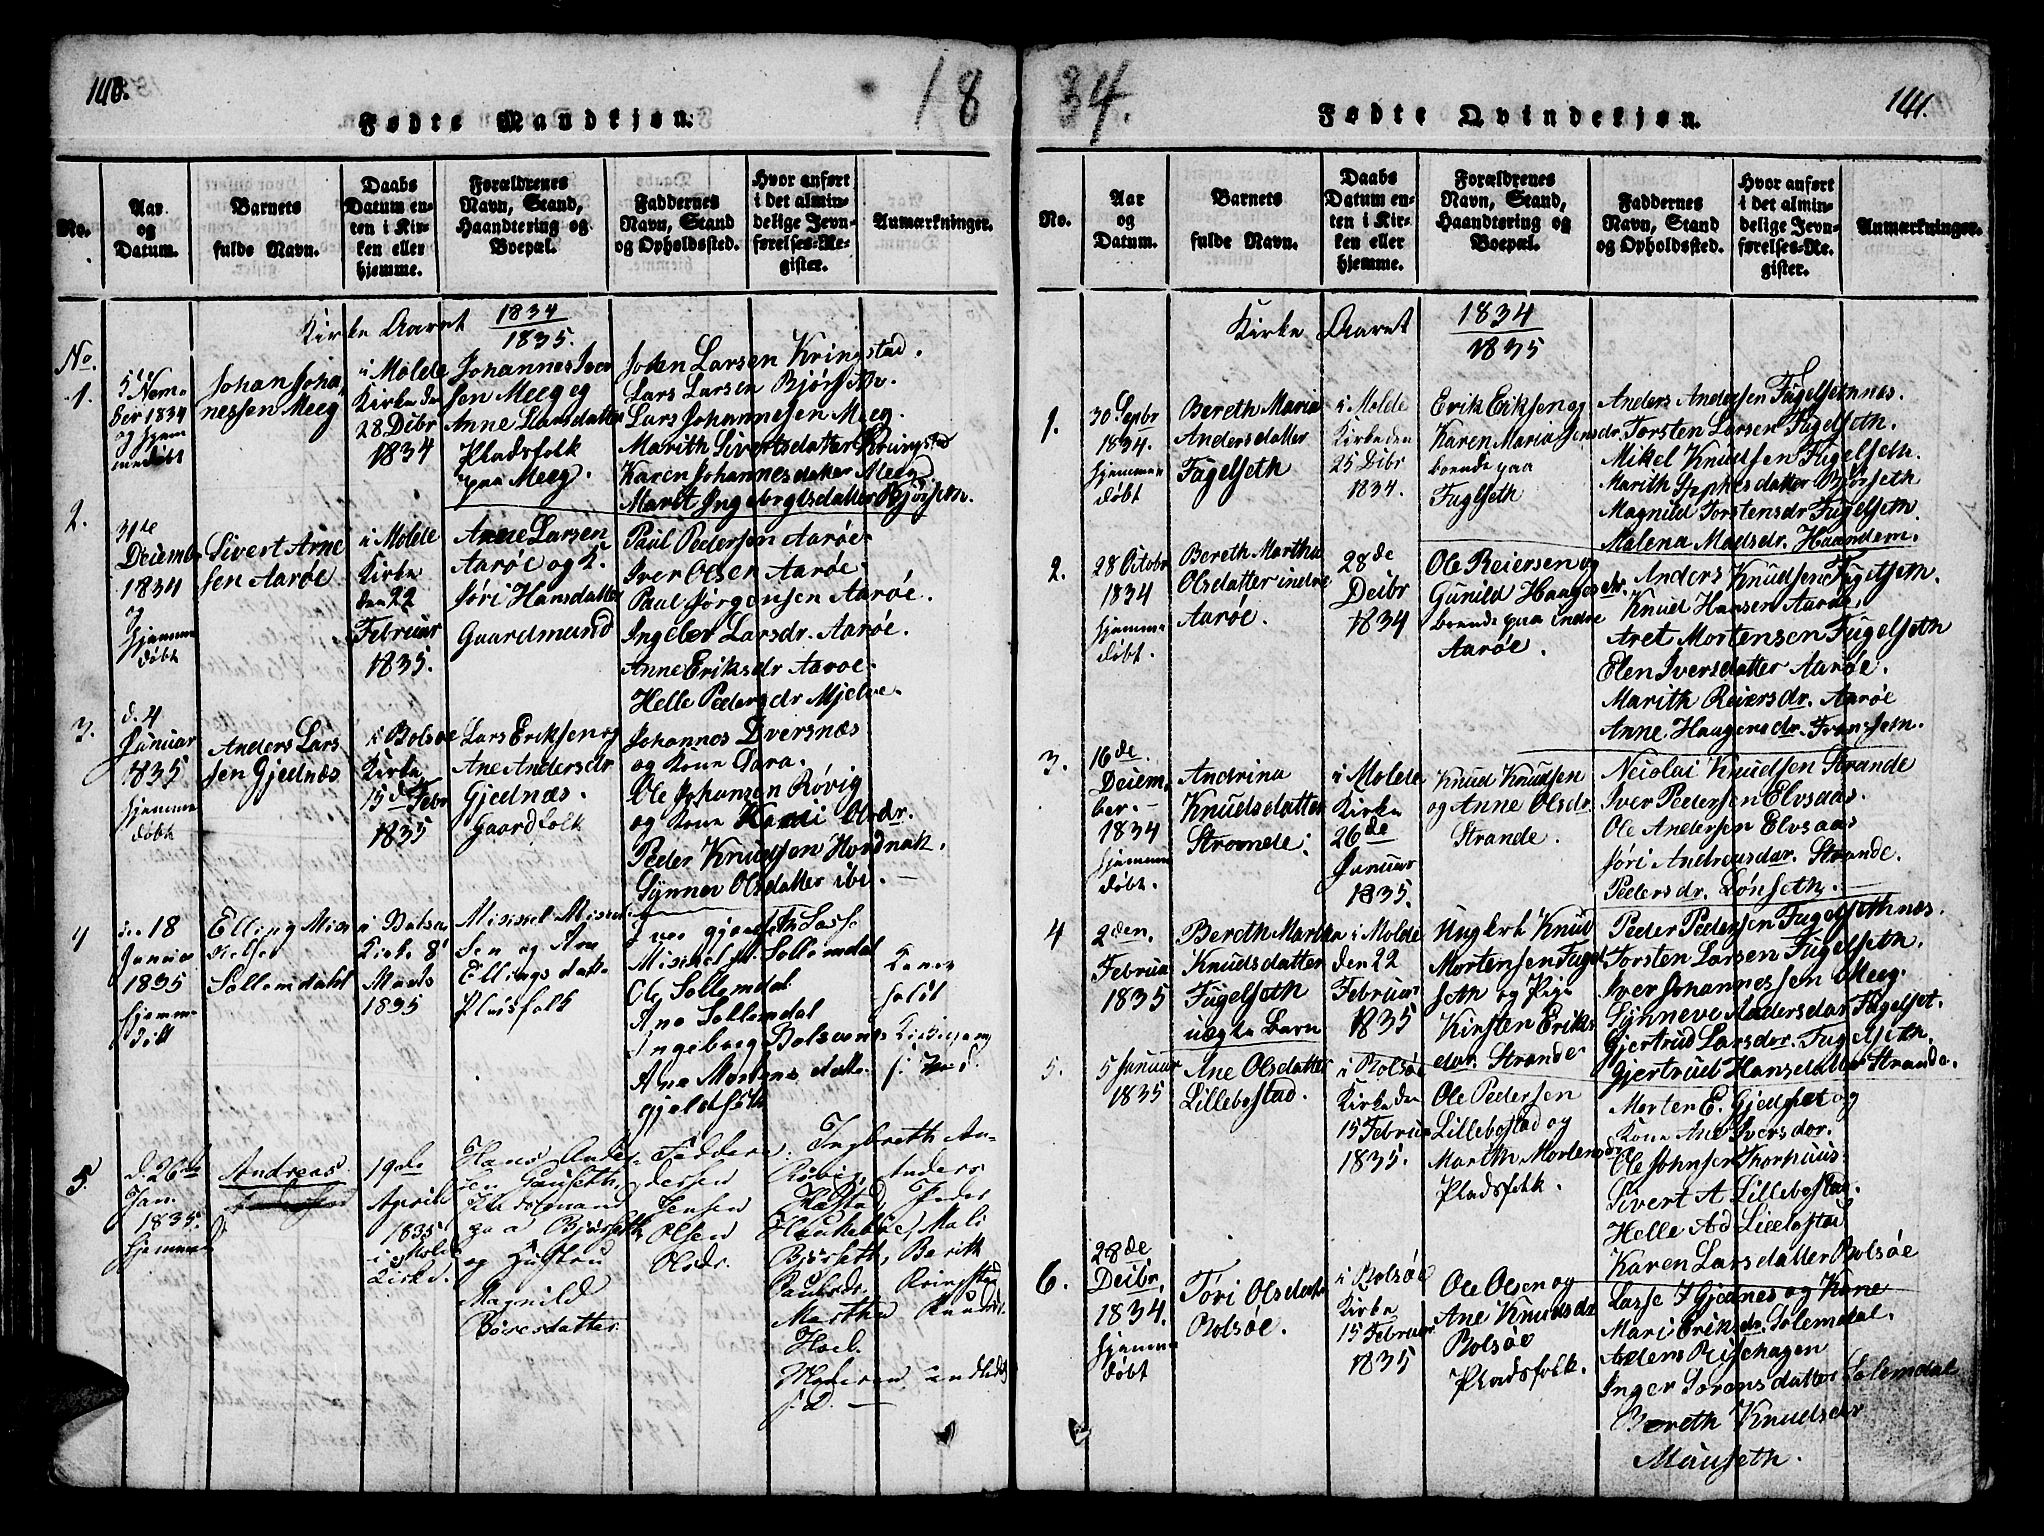 140.
18
Fødte Mandkjøn.
No.
Aar og Datum.
Barnets fulde Navn.
Daabs Datum enten i Kirken eller hjemme.
Forældrenes Navn, Stand, Haandtering og Boepæl.
Faddernes Navn, Stand og Opholdssted.
Hvor anført i det almindelige Jevnførelses-Register.
Anmærkninger.
Kirke Aaret 1834
1835.
No.
1.
5 Novem
ber 1834
hjem
medøbt
Johan Joha,
nessen Meeg
i Molde
Kirke den
28 Dcbr
1834
Johannes Iver
sen Meeg og
Anne Larsdatter
Pladsfolk
paa Meeg.
John Larsen Kringstad.
Lars Larsen Bjørseth.
Lars Johannesen Meeg.
Marith Sivertsdatter Kringstad
Karen Johannesdatter Meeg
Marit Ingebrgtsdatter Bjørseth.
2.
31te
Decembr
1834
hjemme
døbt
Sivert Arne
sen Aarøe
i Molde
Kirke
den 22
Februar
1835.
Arne Larsen
Aarøe og K.
Jøri Hansdatter
Gaardmand
Paul Pedersen Aarøe.
Iver Olsen Aarøe.
Paul Jørgensen Aarøe.
Ingeber Larsdr. Aarøe.
Anne Eriksdr Aaroe.
Helle Pedersdr Mjelve.
3.
d. 4
Januar
1835
hjemme
døbt
Anders Lars
sen Gjednæs
i Bolsøe
Kirke
15 de Febr
1835
Lars Eriksen og
Ane Andersdr
Gjednæs.
Gaardfolk
Johannes Dversnæs
og Kone Sara.
Ole Johansen Røvig
og Kone Olsdr.
Peder Knudsen Hordnak.
Synnev Olsdatter ibi. —
4
18
Januar
1835
hjemme
Elling Mic
kelsen
Sollemdahl
i Bolsø
Kirke 8
Marts
1835
og
Ellings datter
Pladsfolk
Sollemdal
Ole Sollemdal
Ane Sollemdal
Ingeborg Bolsøenes
Ane Mortens datter
Gjeldseth
Konen
holdt
5.
d. 26de
Jan.
1835.
hjemme d
Andreas
19de
April
1835
i Molde
Kirke.
Hans Ander
sen Gauseth,
paa Bjørseth
og Hustru
Magnild
Tøresdatter.
Faddere: Ingbreth An-
dersen Røbig, Anders
Jensen Peder
Olsen Mali
Olsdr. Bjørseth, Berith
Paulsdr. Kringstad
Martha Knudsdr.
Hoel.
Moderen indledet
s. D. —
34.
141.
Fødte Qvindekjøn.
No.
Aar og Datum.
Barnets fulde Navn.
Daabs Datum enten i Kirken eller hjemme.
Forældrenes Navn, Stand, Haandtering og Boepæl.
Faddernes Navn, Stand og Opholdssted.
Hvor anført i det almindelige Jevnførelses-Register.
Anmærkninger.
Kirke Aaret 1834
1835
1.
30 Sepbr
1834.
hjemme
døbt
Bereth Maria
Andersdatter
Fugelseth
i Molde
Kirke den
25 Dcbr
1834.
Erik Eriksen og
Karen Maria Jensdr.
boende paa
Fuglseth
Anders Andersen Fugelsethnes.
Torsten Larsen Fugelseth.
Mikel Knudsen Fugelseth.
Marith datter Bjørseth
Magnild Torstensdr Fugelseth
Malena Madsdr. Haandem.
2.
28 Octobr
1834
hjemme
døbt.
Bereth Martha
Olsdatter indre
Aarøe.
28de
Decbr
1834
Ole Reiersen og
Gunild Haagensdr.
boende paa indre
Aarøe.
Anders Knudsen Fugelseth.
Knud Hansen Aarøe.
Aret Mortensen Fugelseth
Elen Iversdatter Aarøe.
Marith Reiersdr. Aarøe
Anne Haagensdr. Franseth.
3.
16de
Decem,
ber. —
1834
hjemme
døbt.
Andrina
Knudsdatter
Strande.
i Molde
Kirke
26de
Januar
1835.
Knud Knudsen
og Anne Olsdr.
Strande.
Nicolai Knudsen Strande
Iver Pedersen Elvsaas.
Ole Andersen Elvsaas
Jøri Andreasdr. Strande.
Pedersdr. Lønseth. —
4
2den.
Februar
1835
Bereth Martha
Knudsdatter
Fugelseth
uægte Barn
i Molde
den 22
Februar
1835
Ungkarl Knud
Mortensen Fugel
seth og Pige
Kirsten Eriks
dtr. Strande
Peder Pedersen Fugelsethnes.
Torsten Larsen Fugelseth.
Iver Johannessen Meeg.
Synneve Andersdatr Fugelset.
Gjertrud Larsdtr. Fugelseth.
Gjertrud Hansdatter Strande.
5.
5 Januar
1835
Ane Olsdatter
Lillebostad.
i Bolsøe
Kirke den
15 Februar
1835.
Ole Pedersen
Lillebostad og
Marith Mortensdr
Pladsfolk.
Morten E. Gjedset og
Kone Ane Iversdtr.
Ole Johnsen Thorhuus
Sivert A Lillebostad.
Helle Ad Lillebostad
Karen Larsdatter Bolsøe
6.
28de
Decbr.
1834.
hjemme
døbt
Tøri Olsdatr
Bolsøe.
i Bolsøe
Kirke
15 Februar
1835
Ole Olsen og
Ane Knudsdr
Bolsøe
Pladsfolk.
Lasse T Gjednes og Kone
Mari Eriksdr. Solemdal.
Anders Risehagen
Inger Sørensdatter Solemdal
Bereth Knudsdr
Mauseth.